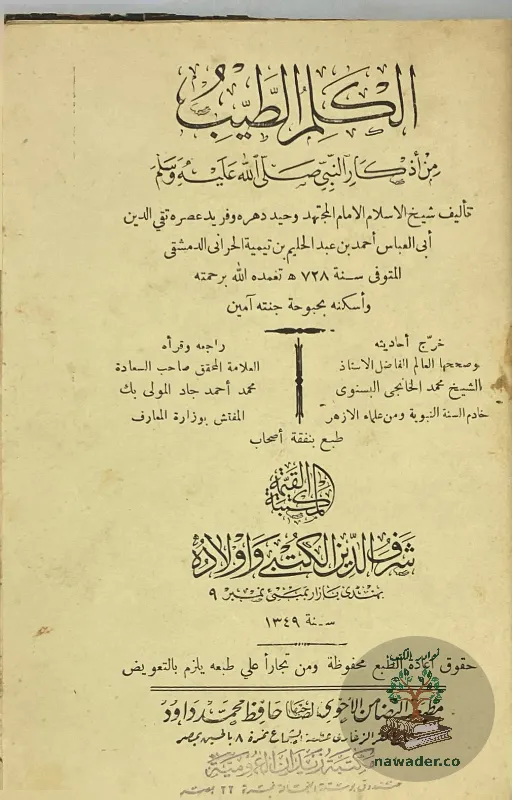 الكلم الطيب
من أذكار النبي صلى الله عليه وسلم
تأليف شيخ الاسلام الامام المجتهد وحيد دهره وفريد عصره تقي الدين
أبى العباس أحمد بن عبد الحليم بن تيمية الحرانى الدمشقى
المتوفى سنة ٧٢٨ ه تغمده الله برحمته
وأسكنه بحبوحة جنته آمين
خرّج أحاديثه
وصححها العالم الفاضل الاستاذ
الشيخ محمد الخانجى البسنوى
خادم السنة النبوية ومن علماء الازهر
راجعه وقرأه
العلامة المحقق صاحب السعادة
محمد أحمد جاد المولى بك
المفتش بوزارة المعارف
طبع بنفقة أصحاب
المكتبة القيمة
شرف الدين الكتبي وأولاده
بهندى بازار بمبئى نمبر ٩
سنة ١٣٤٩
حقوق اعادة الطبع محفوظة ومن تجارأ علي طبعه يلزم بالتعويض
التضامن الأخوى لصاحبها حافظ محمد داود
نمرة ٨ بمصر
مكتبة زيدان العمومية
نوادر الكتب
nawader.co